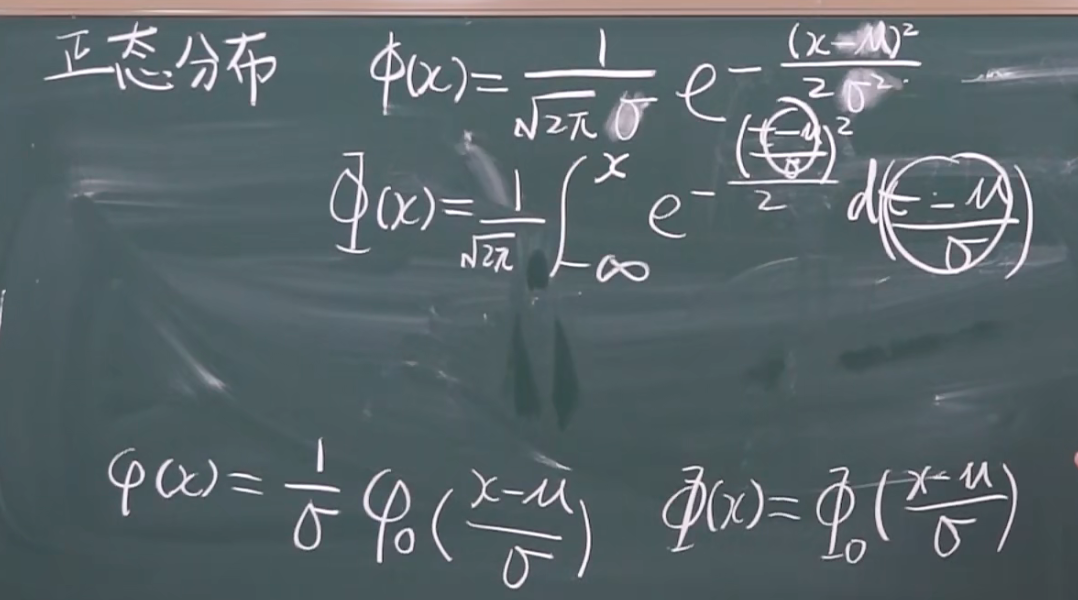 正态分布 ϕ(x)=1/(√2π σ) e^-(x-μ)²/2σ²
Φ(x)=1/√2π ∫_-∞^x e^-((t-μ)/σ)²/2 d((t-μ)/σ)
φ(x)=1/σ φ₀((x-μ)/σ) Φ(x)=Φ₀((x-μ)/σ)